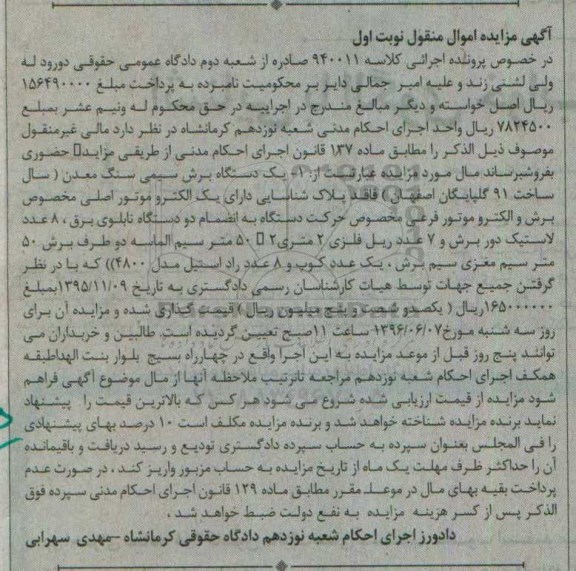 آگهی مزایده اموال منقول نوبت اول
در خصوص پرونده اجرائی کلاسه ۹۴۰۰۱۱ صادره از شعبه دوم دادگاه عمومی حقوقی دورود له
ولی لشنی زند و علیه امیر جمالی دایر بر محکومیت نامبرده به پرداخت مبلغ ۱۵۶۴۹۰۰۰۰
ریال اصل خواسته و دیگر مبالغ مندرج در اجراییه در حق محکوم له ونیم عشر بمبلغ
۷۸۲۴۵۰۰ ریال واحد اجرای احکام مدنی شعبه نوزدهم کرمانشاه در نظر دارد مالی غیرمنقول
موصوف ذیل الذکر را مطابق ماده ۱۳۷ قانون اجرای احکام مدنی از طریقی مزاید حضوری
بفروشبرساند مال مورد مزایده عبارتست از: ۱- یک دستگاه برش سیمی سنگ معدن ( سال
ساخت ۹۱ گلپایگان اصفهان) فاقد پلاک شناسایی دارای یک الکترو موتور اصلی مخصوص
برش و الکترو موتور فرعی مخصوص حرکت دستگاه به انضمام دو دستگاه تابلوی برق ، ۸ عدد
لاستیک دور برش و ۷ عدد ریل فلزی ۲ متری۲ ۵۰ متر سیم الماسه دو طرف برش ۵۰
متر سیم مغزی سیم برش ، یک عدد کوپ و ۸ عدد راد استیل مدل ۴۸۰۰)) که با در نظر
گرفتن جمیع جهات توسط هیات کارشناسان رسمی دادگستری به تاریخ ۱۳۹۵/۱۱/۰۹بمبلغ
۱۶۵۰۰۰۰۰۰ریال ( یکصدو شصت و پنج میلیون ریال ) قیمت گذاری شده و مزایده آن برای
روز سه شنبه مورخ۱۳۹۶/۰۶/۰۷ ساعت ۱۱صبح تعیین گردیده است. طالبین و خریداران می
توانند پنج روز قبل از موعد مزایده به این اجرا واقع در چهارراه بسیج بلوار بنت الهداطبقه
همکف اجرای احکام شعبه نوزدهم مراجعه تاترتیب ملاحظه آنها از مال موضوع آگهی فراهم
شود مزایده از قیمت ارزیابی شده شروع می شود هر کس که بالاترین قیمت را پیشنهاد
نماید برنده مزایده شناخته خواهد شد و برنده مزایده مکلف است ۱۰ درصد بهای پیشنهادی
را فی المجلس بعنوان سپرده به حساب سپرده دادگستری تودیع و رسید دریافت و باقیمانده
آن را حداکثر ظرف مهلت یک ماه از تاریخ مزایده به حساب مزبور واریز کند ، در صورت عدم
پرداخت بقیه بهای مال در موعد مقرر مطابق ماده ۱۲۹ قانون اجرای احکام مدنی سپرده فوق
الذکر پس از کسر هزینه مزایده به نفع دولت ضبط خواهد شد .
دادورز اجرای احکام شعبه نوزدهم دادگاه حقوقی کرمانشاه –مهدی سهرابی